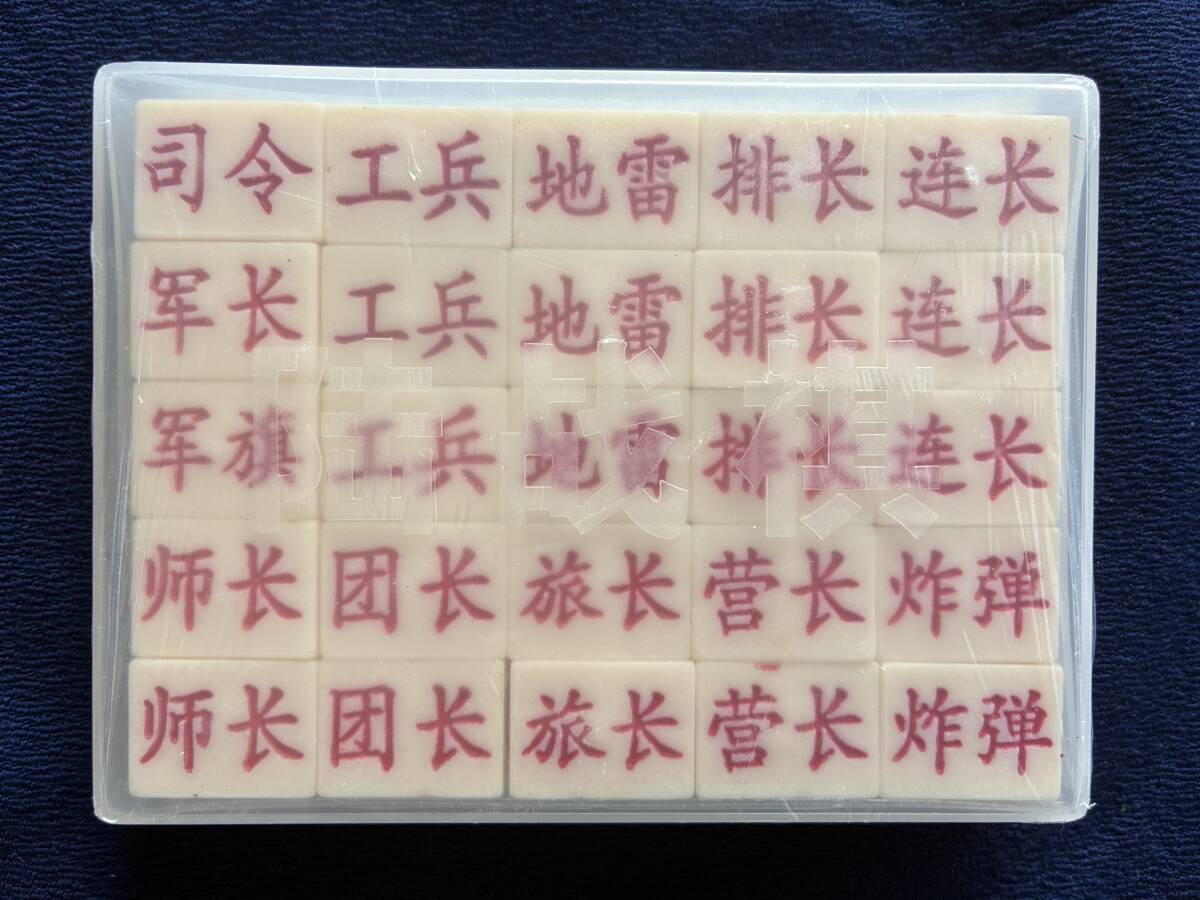 司令 工兵 地雷 排长 连长
军长 工兵 地雷 排长 连长
陆战棋
军旗 工兵 地雷 排长 连长
师长 团长 旅长 营长 炸弹
师长 团长 旅长 营长 炸弹